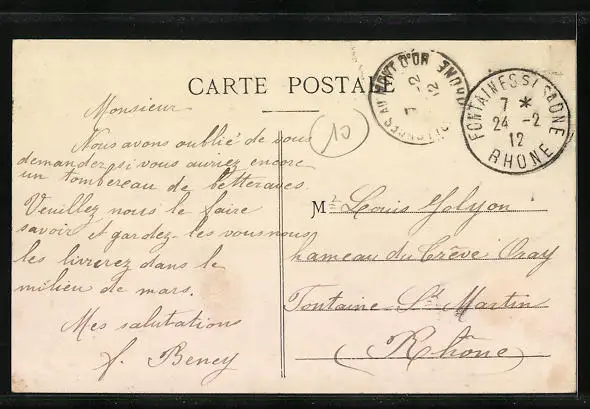 CARTE POSTALE
COLLONGES AU MONT D'OR
7 -2
12
RHONE
FONTAINES S/ SAONE
7 *
24 -2
12
RHONE
10
Monsieur
Nous avons oublié de vous
demander si vous auriez encore
un tombereau de betteraves.
Veuillez nous le faire
savoir et gardez-les vous nous
les livrerez dans le
milieu de mars.
Mes salutations
f. Beney
Mr Louis Golyon
hameau du Crêve Oray
Fontaine St Martin
(Rhône)